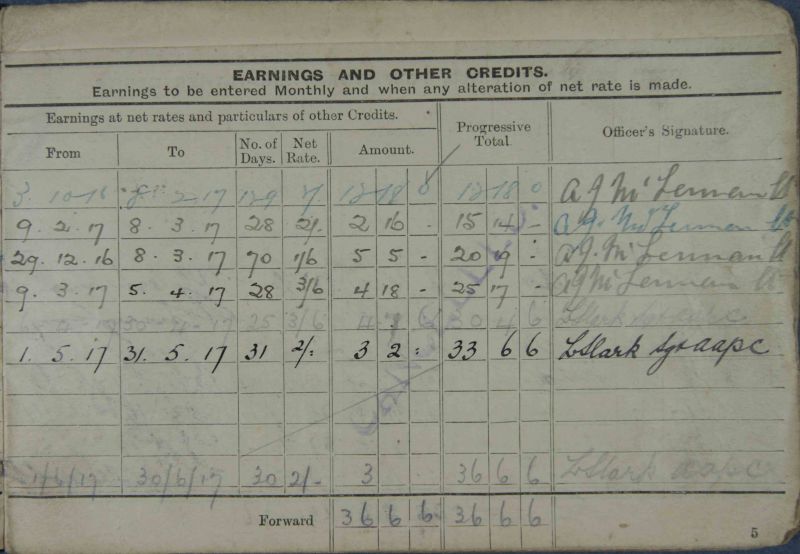 EARNINGS AND OTHER CREDITS.
Earnings to be entered Monthly and when any alteration of net rate is made.
Earnings at net rates and particulars of other Credits.
Progressive Total.
Officer's Signature.
From To No. of Days. Net Rate. Amount.
3. 10-16 8. 2-17 129 2/ 12 18 0 12 18 0 A J McLennan Lt
9. 2. 17 8. 3. 17 28 2/. 2 16 - 15 14 - A J. McLennan Lt
29. 12. 16 8. 3. 17 70 1/6 5 5 - 20 19 - A J. McLennan Lt
9. 3. 17 5. 4. 17 28 3/6 4 18 - 25 17 - A J McLennan Lt
6 4 17 30 4 17 25 3/6 4 7 6 30 4 6
1. 5. 17 31. 5. 17 31 2/: 3 2 : 33 6 6 Sgt AAPC
1/6/17 30/6/17 30 2/- 3 36 6 6 AAPC
Forward 36 6 6 36 6 6
5